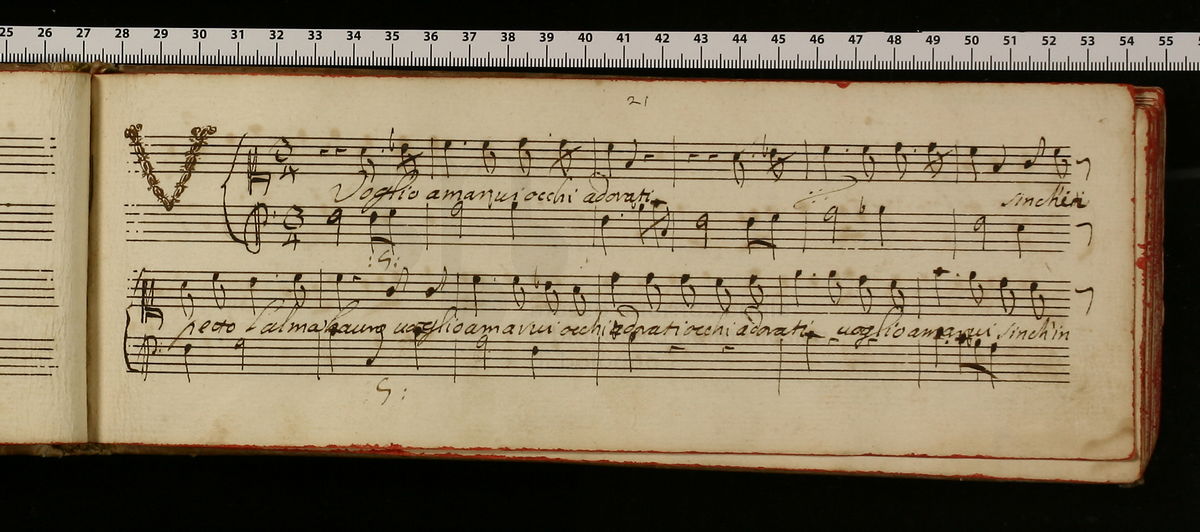 25 26 27 28 29 30 31 32 33 34 35 36 37 38 39 40 41 42 43 44 45 46 47 48 49 50 51 52 53 54 55
21
V
3 4
Voglio amarui occhi adorati sinch'in
3 4
petto l'alma haurò uoglio amarui occhi adorati occhi adorati uoglio amarui sinch'in